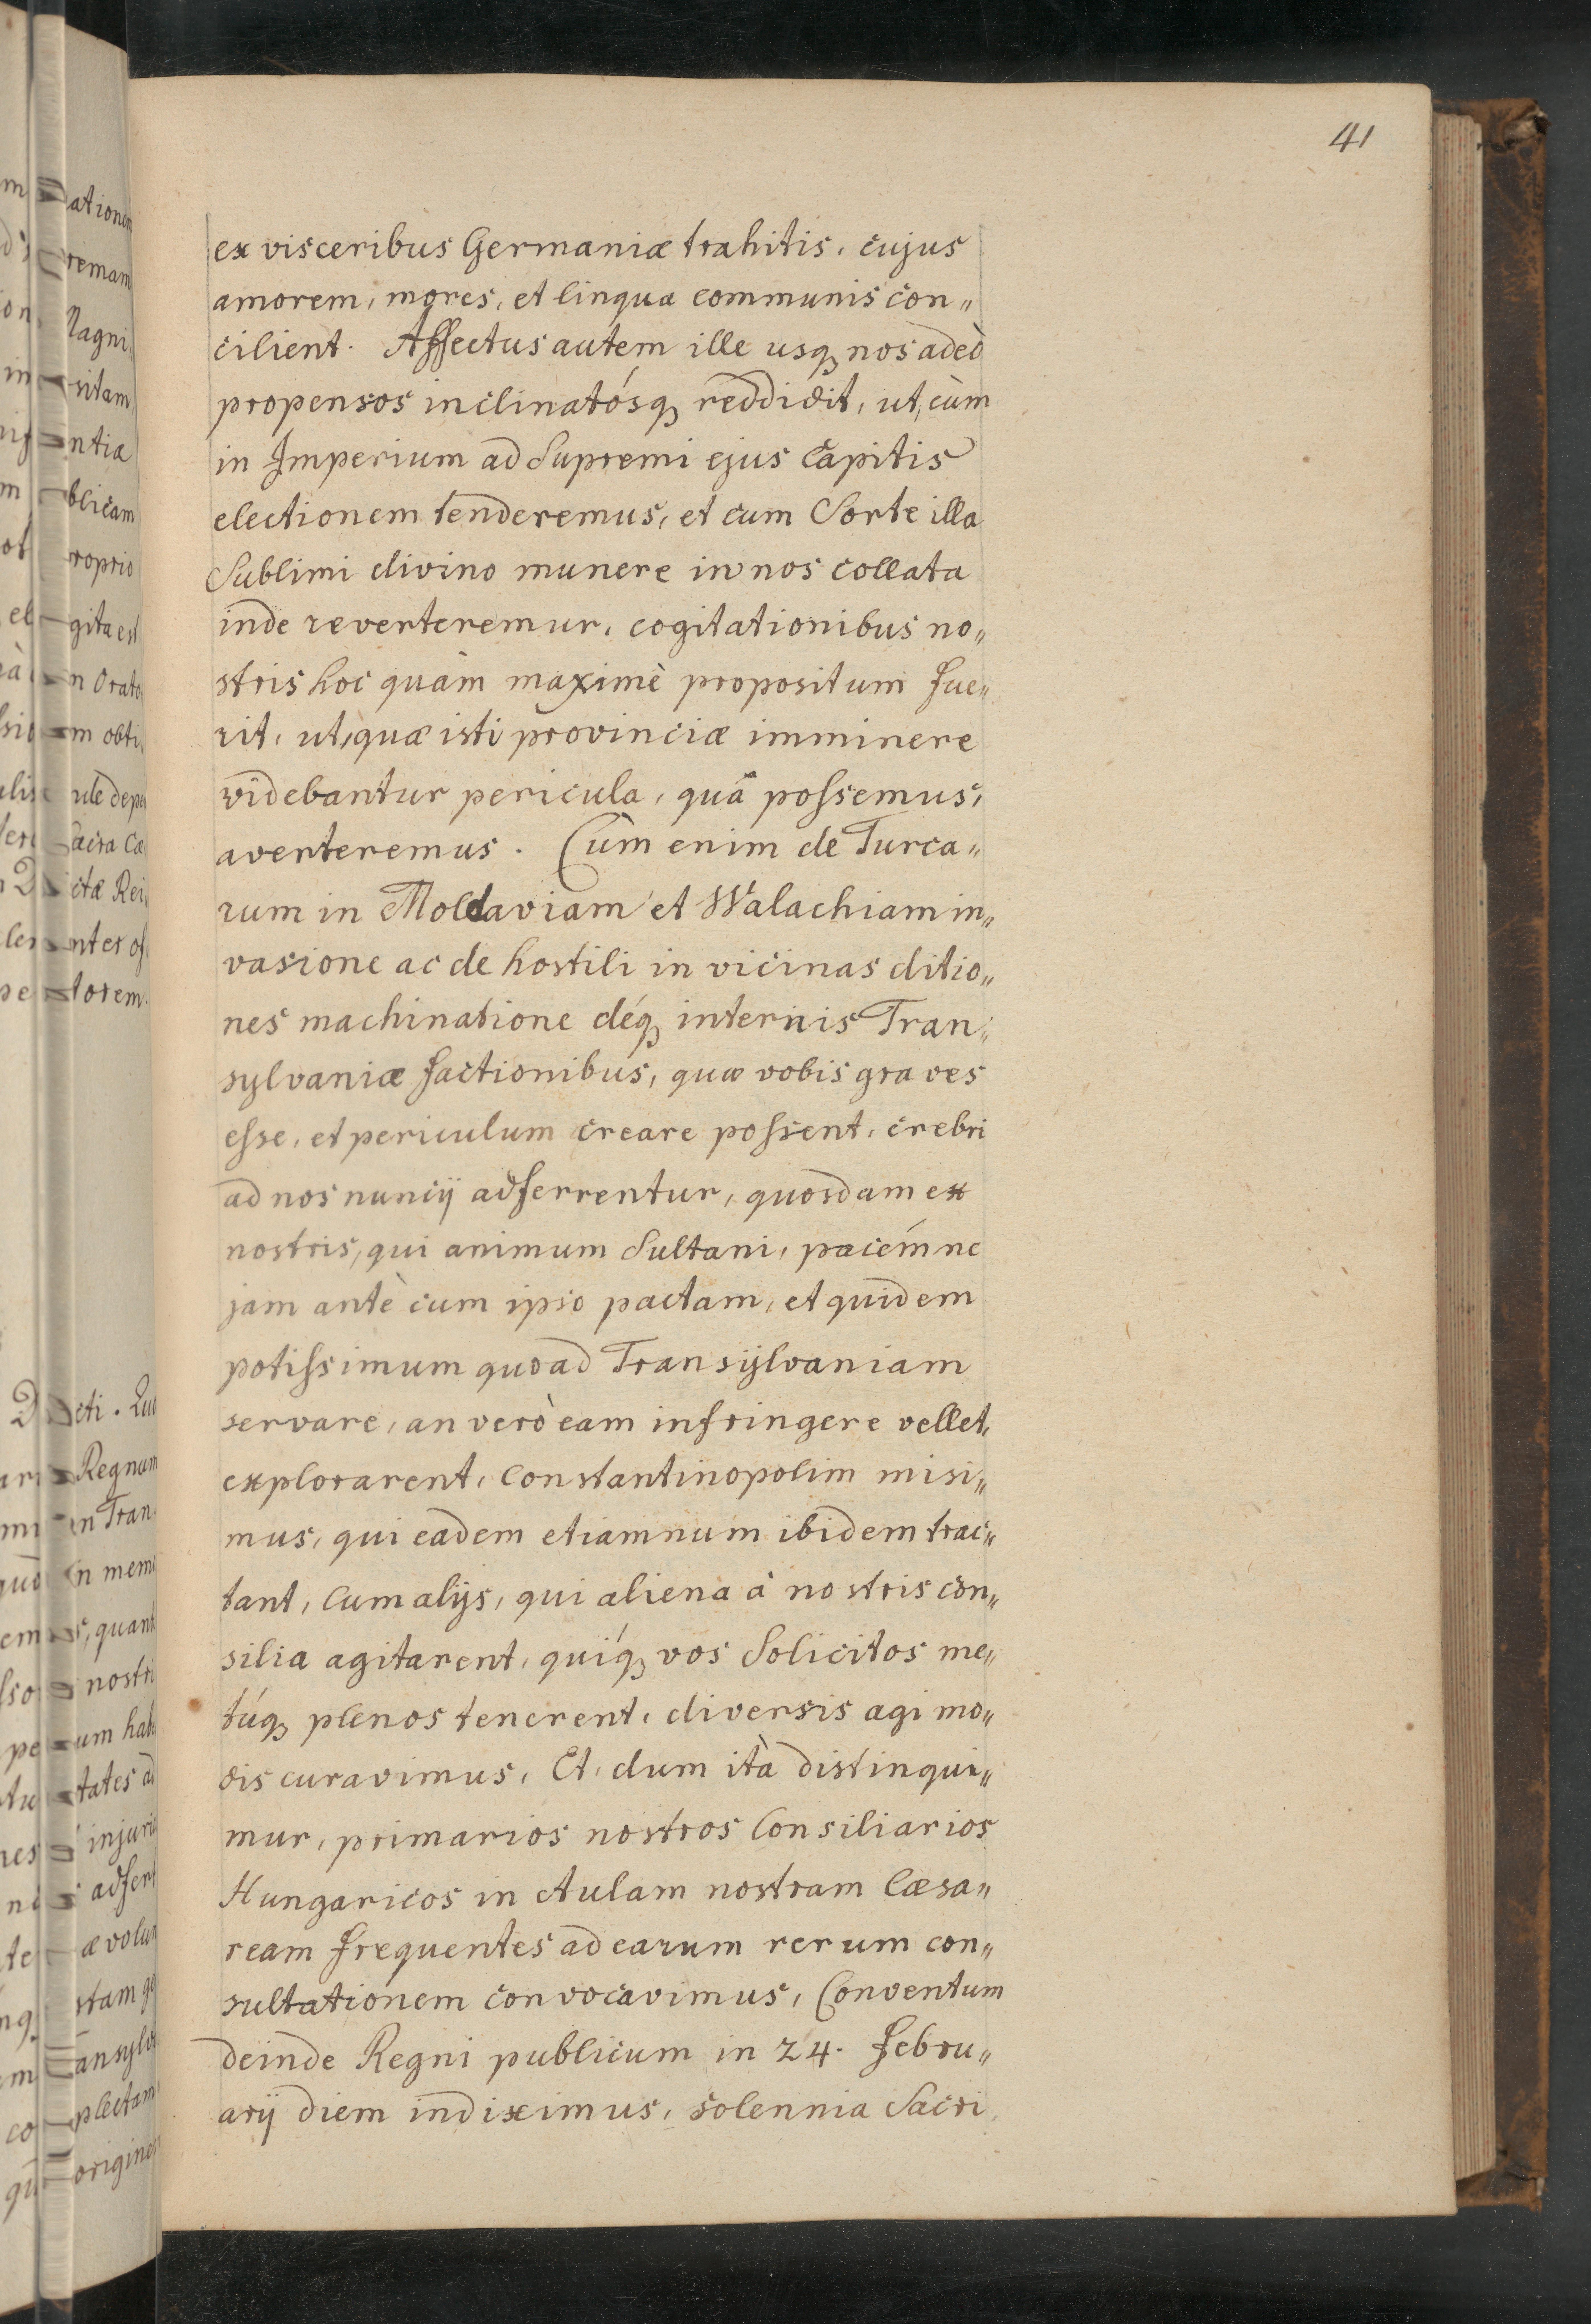 41
ex visceribus Germaniæ trahitis, cujus
amorem, mores, et lingua communis con„
cilient. Affectus autem ille usq nos adeò
propensos inclinatósq reddidit, ut, cùm
in Imperium ad Supremi ejus Capitis
electionem tenderemus, et cum Sorte illa
Sublimi divino munere in nos collata
inde reverteremur, cogitationibus no„
stris hoc quàm maximè propositum fue„
rit, ut, quæ isti provinciæ imminere
videbantur pericula, quâ possemus,
averteremus. Cùm enim de Turca„
rum in Moldaviam et Walachiam in„
vasione ac de hostili in vicinas ditio„
nes machinatione déq internis Tran„
sylvaniæ factionibus, quæ vobis graves
esse, et periculum creare possent, crebri
ad nos nuncij adferrentur, quosdam ex
nostris, qui animum Sultani, pacémne
jam antè cum ipso pactam, et quidem
potissimum quoad Transÿlvaniam
servare, an verò eam infringere vellet,
explorarent, Constantinopolim misi„
mus, qui eadem etiamnum ibidem trac„
tant, cum alijs, qui aliena à nostris con„
silia agitarent, quíq vos Solicitos me„
túq plenos tenerent, diversis agi mo„
dis curavimus, Et, dum ità distingui„
mur, primarios nostros Consiliarios
Hungaricos in Aulam nostram Cæsa„
ream frequentes ad earum rerum con„
sultationem convocavimus, Conventum
deinde Regni publicum in 24. Febru„
arij diem indiximus, solennia Sacri